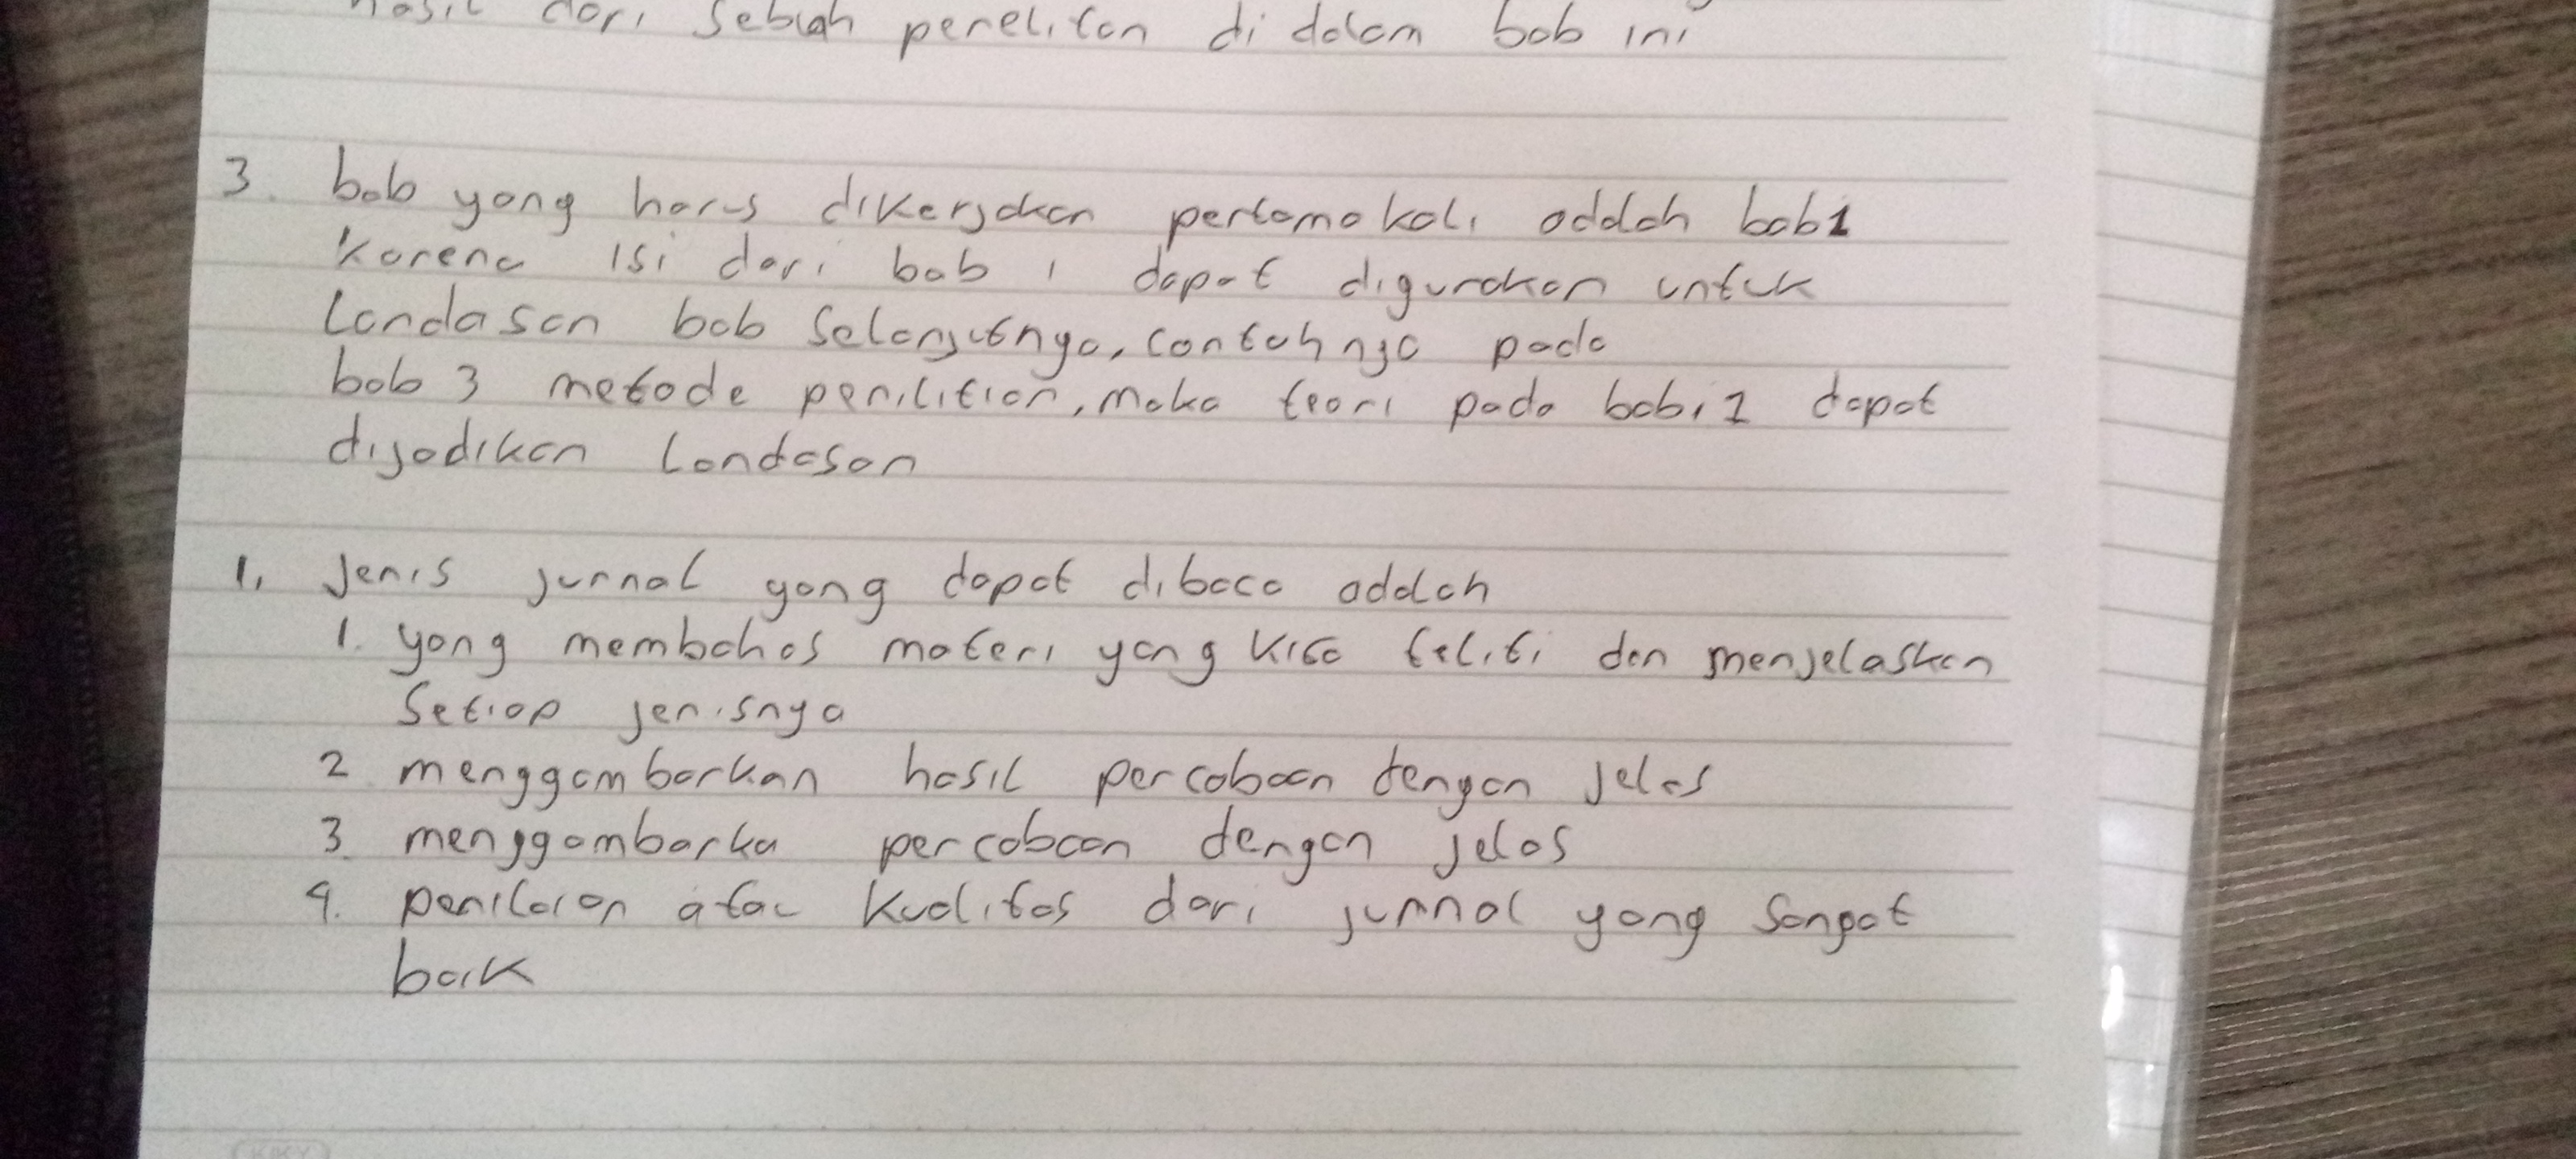 hasil dari sebuah penelitan di dalam bab ini
3. bab yang harus dikerjakan pertama kali adalah bab 1
karena isi dari bab 1 dapat digunakan untuk
landasan bab selanjutnya, contohnya pada
bab 3 metode penilitian, maka teori pada bab 1 dapat
dijadikan landasan
1. Jenis jurnal yang dapat dibaca adalah
1. yang membahas materi yang kita teliti dan menjelaskan
setiap jenisnya
2 menggambarkan hasil percobaan dengan jelas
3. menggambarka percobaan dengan jelas
4. penilaian atau kualitas dari jurnal yang sangat
baik